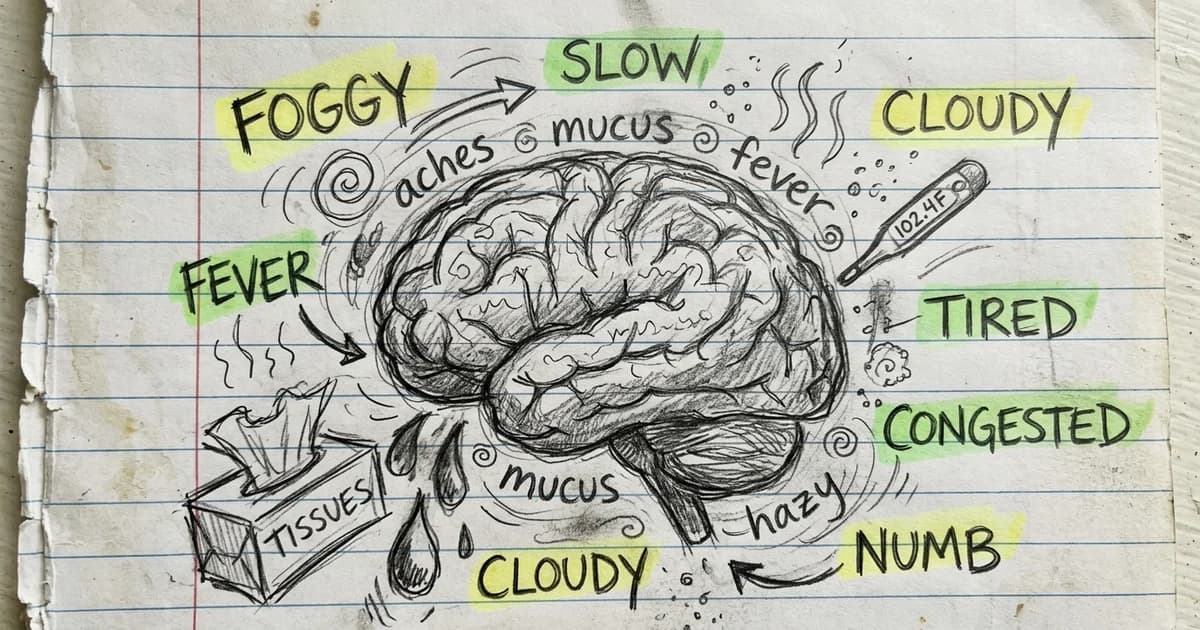 SLOW
FOGGY
CLOUDY
mucus
aches
fever
102.4F
FEVER
TIRED
CONGESTED
TISSUES
mucus
hazy
CLOUDY
NUMB